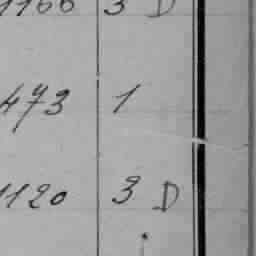 1166 3 D
473 1
1120 3 D